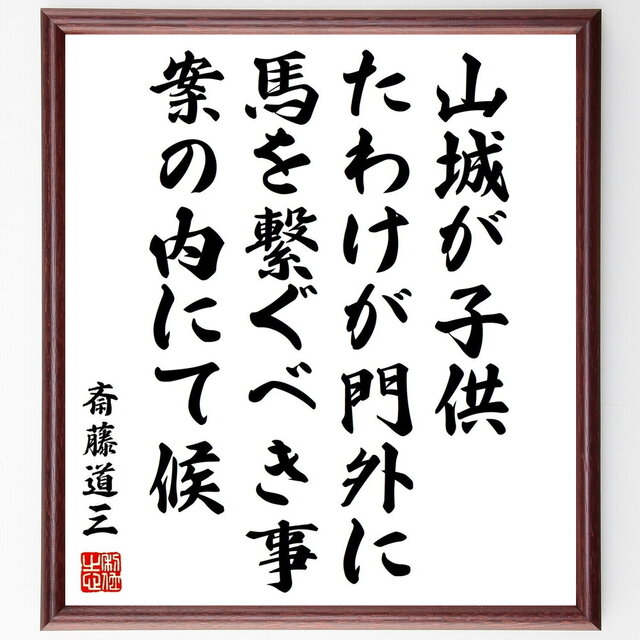 山城が子供
たわけが門外に
馬を繋ぐべき事
案の内にて候
斎藤道三